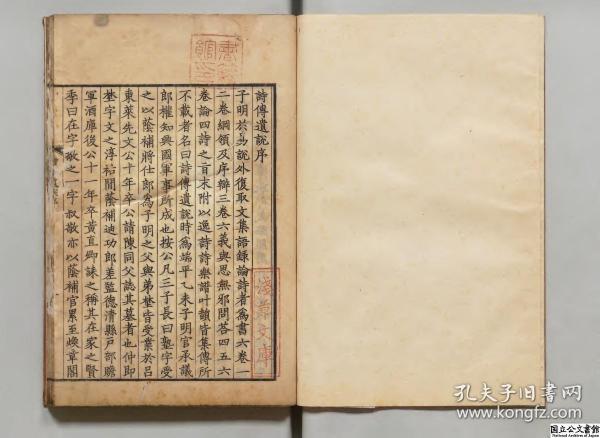 詩傳遺說序
子明於易說外復取文集語錄論詩者為書六卷一
二卷綱領及序辯三卷六義與思無邪問答四五六
卷論四詩之旨末附以逸詩詩樂譜叶韻皆集傳所
不載者名曰詩傳遺說時為端平乙未子明官承議
郎權知興國軍事所成也按公凡三子長曰塾字受
之以蔭補將仕郎為子明之父與弟埜皆受業於呂
東萊先文公十年卒公請陳同父誌其墓者也仲即
埜字文之淳祐間蔭補迪功郎差監德清縣戶部贍
軍酒庫後公十一年卒黃直卿誄之稱其在家之賢
季曰在字敬之一字叔敬亦以蔭補官累至煥章閣
淺草文庫
孔夫子旧书网
www.kongfz.com
国立公文書館
National Archives of Japan